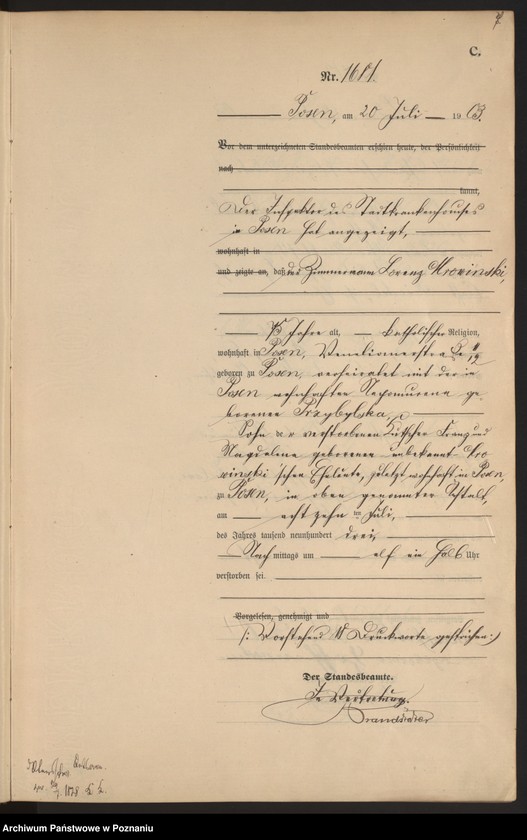 C.
Nr. 1611.
Posen, am 20 Juli 1903.
Vor dem unterzeichneten Standesbeamten erschien heute, der Persönlichkeit
nach
kannt,
Der Inspektor des Stadtkrankenhauses
in Posen hat angezeigt,
wohnhaft in
und zeigte an, daß der Zimmermann Lorenz Mrowinski,
75 Jahre alt, katholischer Religion,
wohnhaft in Posen, Venetianerstraße
geboren zu Posen, verheiratet mit der in
Posen wohnhaften Nepomucena ge-
borenen Przybylska,
Sohn der verstorbenen Kutscher Franz und
Magdalena geborenen unbekannt Mro-
winski'schen Eheleute, zuletzt wohnhaft in Posen,
zu Posen, in oben genannter Anstalt,
am achtzehnten Juli,
des Jahres tausend neunhundert drei,
Nachmittags um elf ein halb Uhr
verstorben sei.
Vorgelesen, genehmigt und
/: Vorstehend Druckworte gestrichen :/
Der Standesbeamte.
In Vertretung.
Archiwum Państwowe w Poznaniu